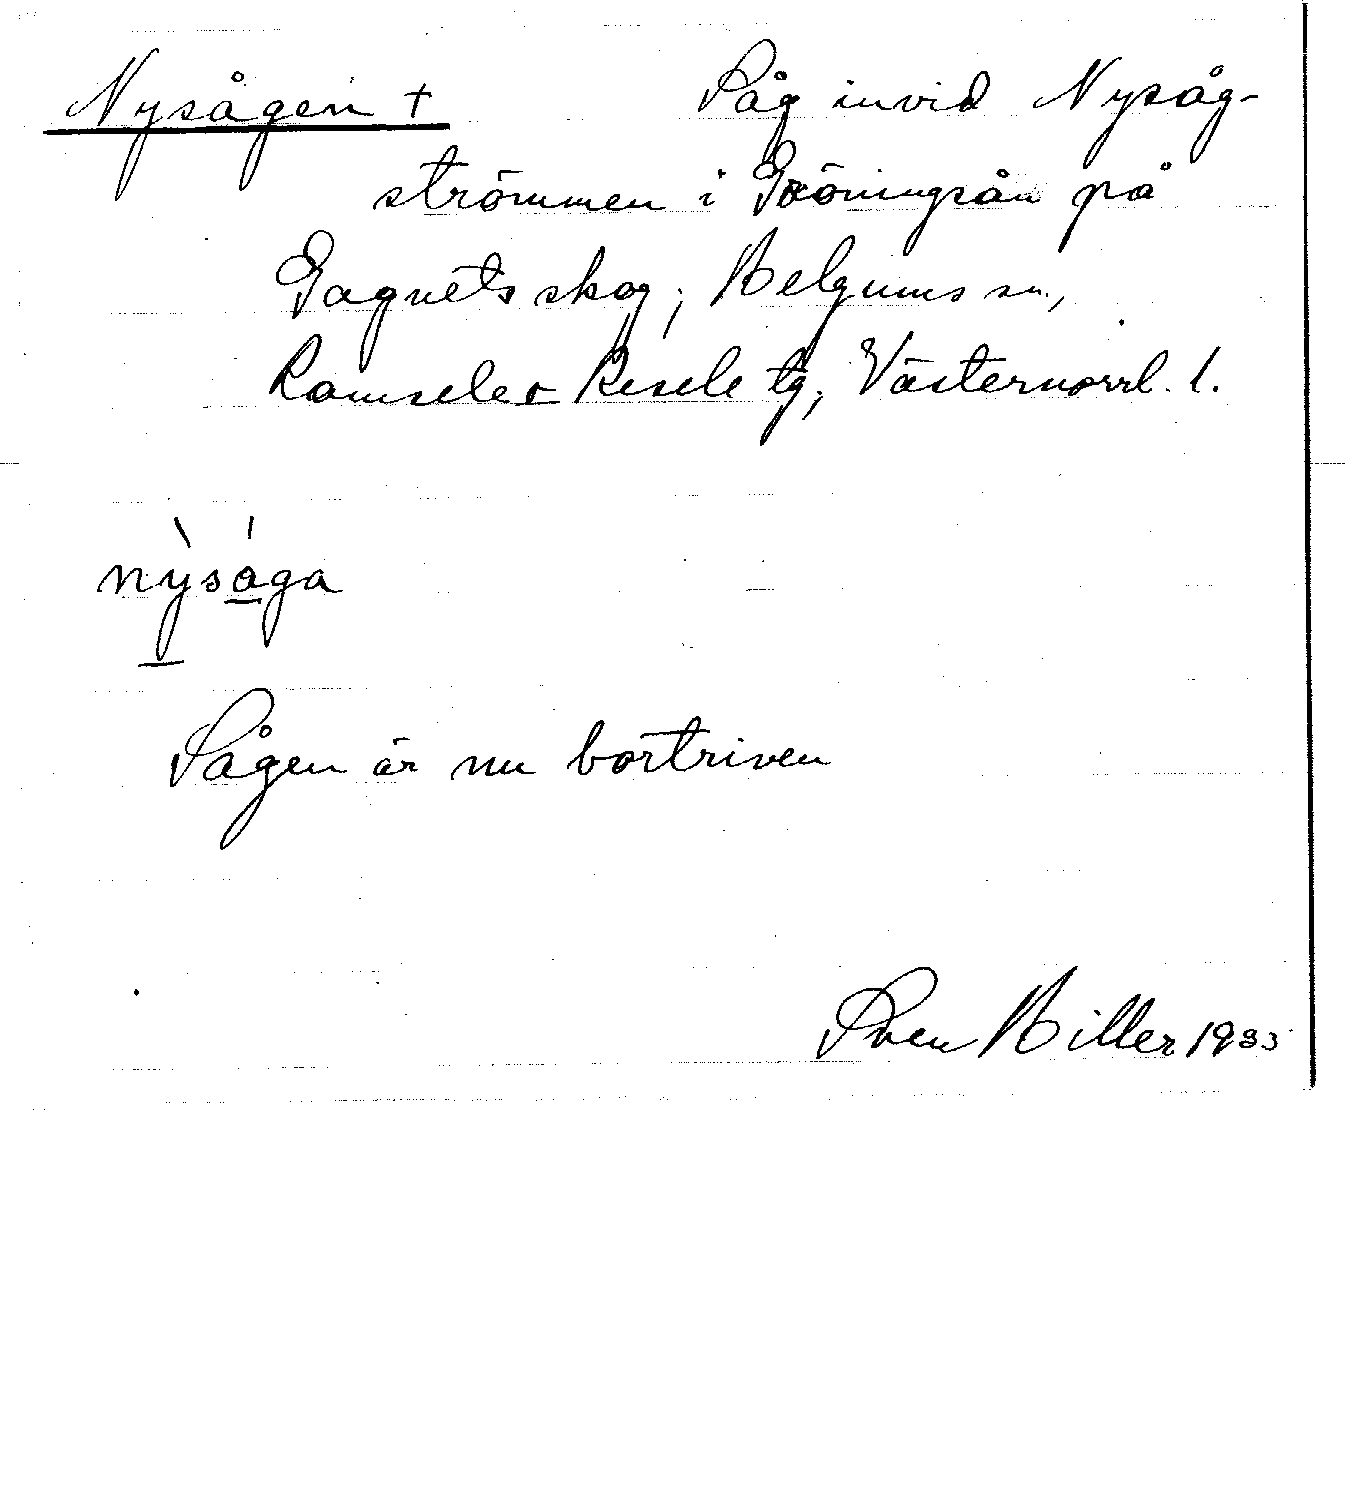 Nysågen + Såg invid Nysåg-
strömmen i Gröningsån på
Gagnets skog, Helgums sn.,
Ramsele o Resele tg, Västernorrl. l.
nỳsága
Sågen är nu bortriven
Sven Hiller 1933